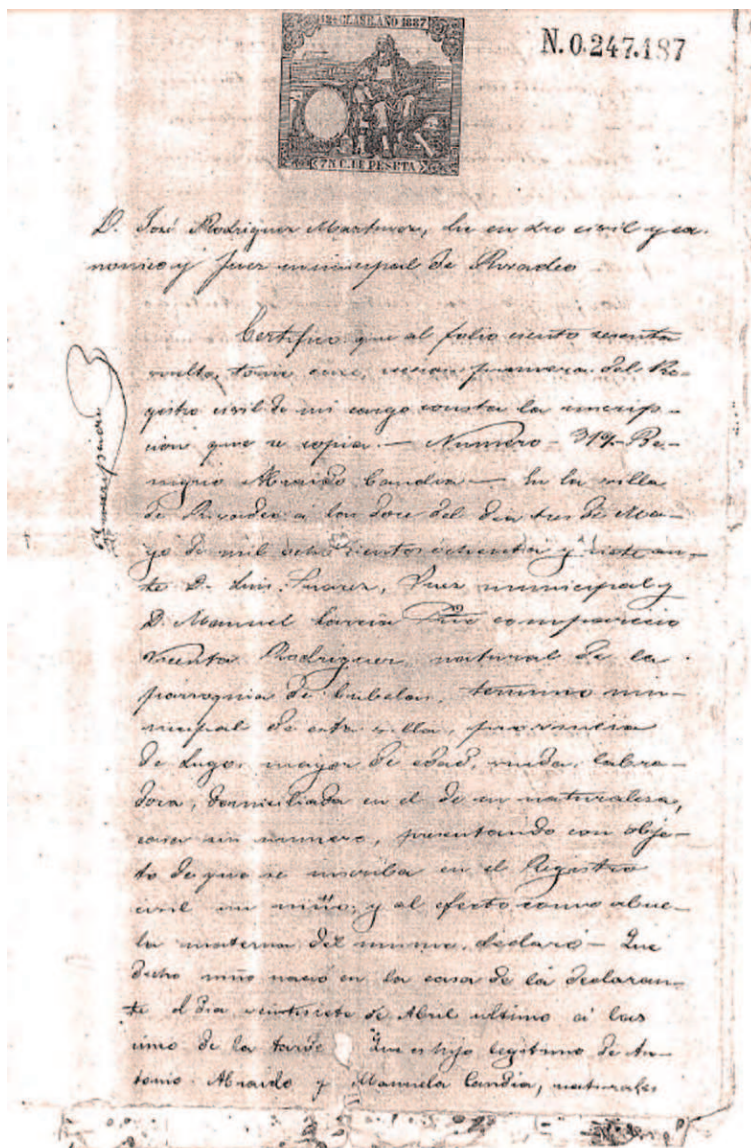 12ª CLASE. AÑO 1887
N.0.247.187
75 C. DE PESETA
D. José Rodriguez Martinez, lic en dro civil y ca-
nonico y Juez municipal de Rivadeo
Certifico: que al folio ciento sesenta
vuelto, tomo once, seccion primera del Re-
gistro civil de mi cargo consta la inscrip-
cion que se copia. — Numero - 319 - Be-
nigno Abraido Candia — En la villa
de Rivadeo á las doce del dia tres de Ma-
yo de mil ochocientos ochenta y siete an-
te D. Luis Suarez, Juez municipal y
D. Manuel Garcia comparecio
Vicenta Rodriguez, natural de la
parroquia de Cubelas, termino mu-
nicipal de esta villa, provincia
de Lugo, mayor de edad, viuda, labra-
dora, domiciliada en el de su naturaleza,
casa sin numero, presentando con obje-
to de que se inscriba en el Registro
civil un niño; y al efecto como abue-
la materna del mismo, declaró — Que
dicho niño nació en la casa de la declaran-
te el dia veintisiete de Abril ultimo á las
de la tarde Que es hijo legitimo de An-
tonio Abraido y Manuela Candia, naturales
Inscripcion